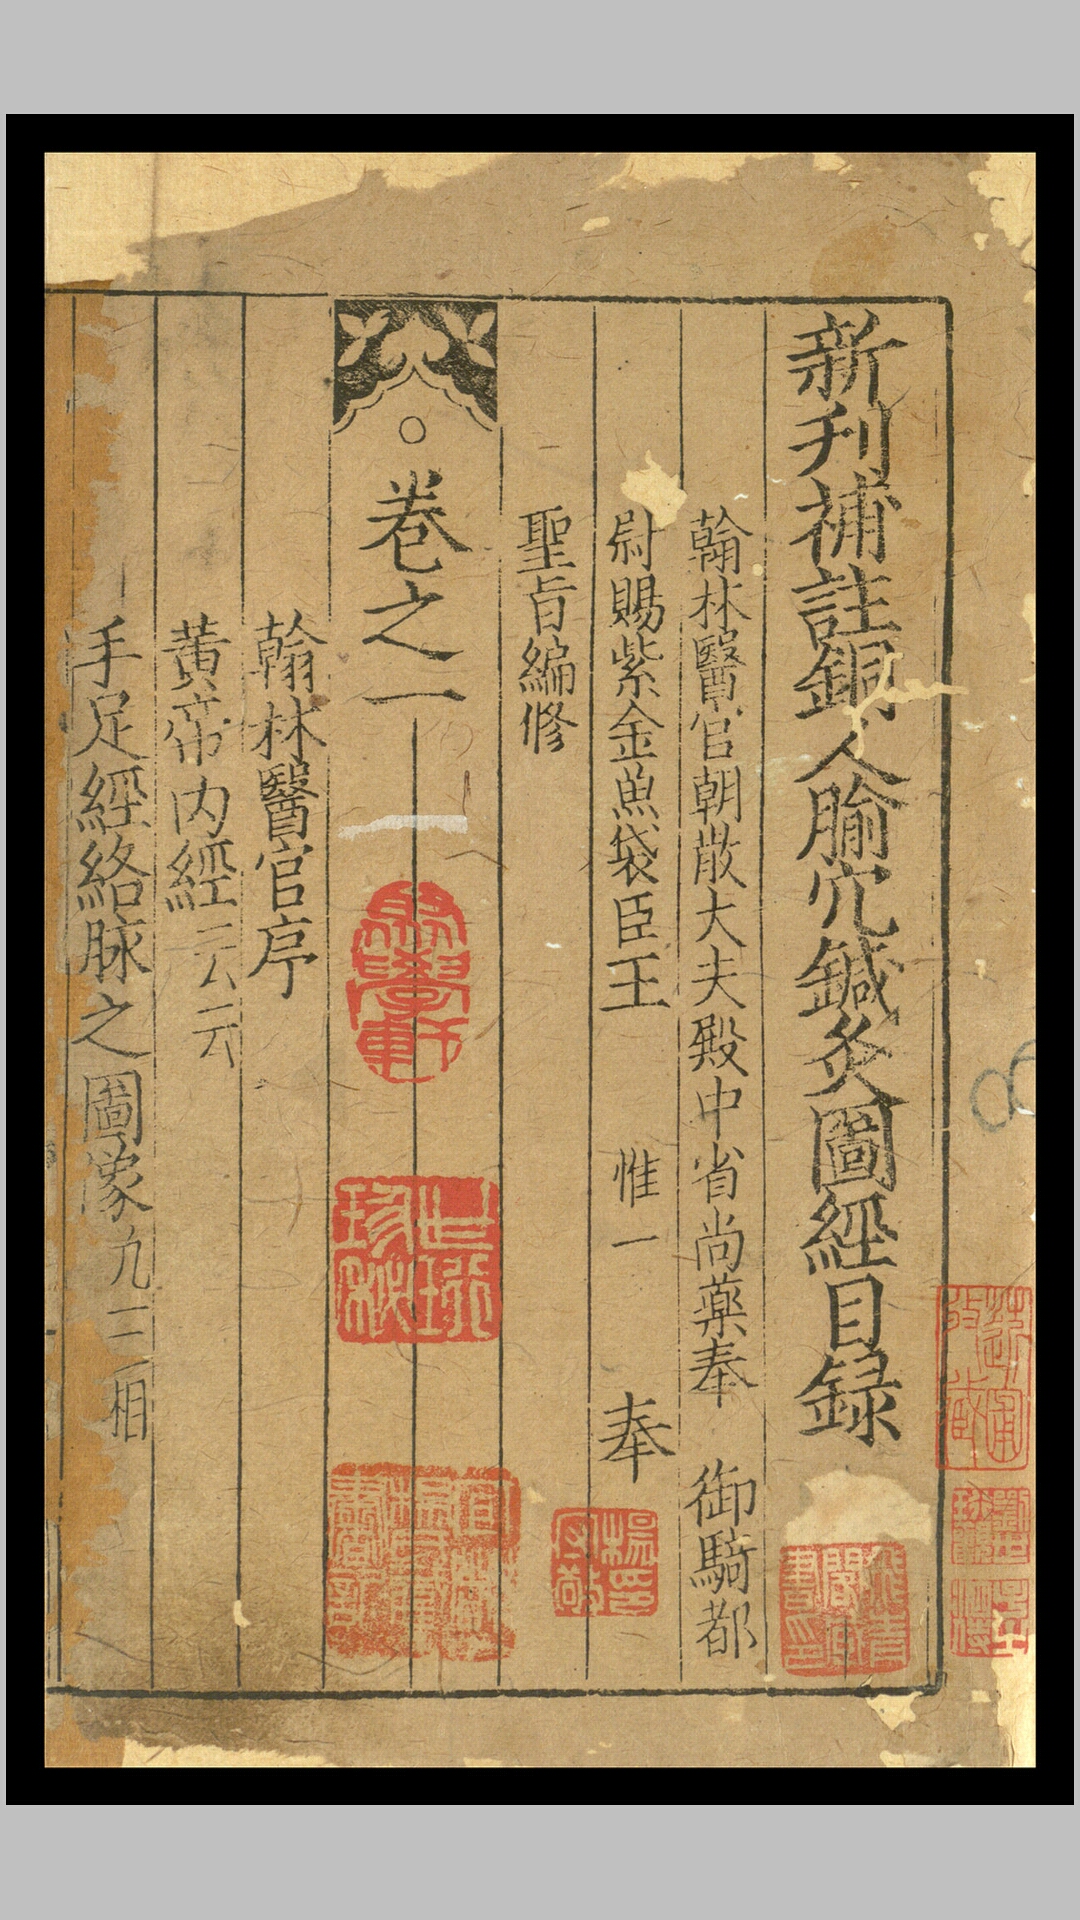 新刊補註銅人腧穴鍼灸圖經目録
翰林醫官朝散大夫殿中省尚藥奉 御騎都
尉賜紫金魚袋臣王 惟一 奉
聖旨編修
卷之一
翰林醫官序
黄帝内經云云
手足經絡脉之圖像九三相